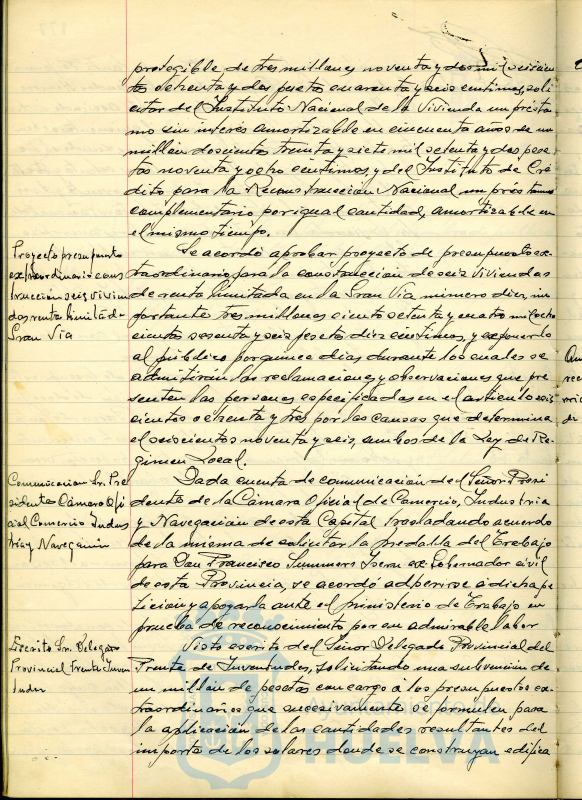 protegible de tres millones noventa y dos mil seiscien
tos ochenta y dos pesetas cuarenta y seis centimos, soli
citar del Instituto Nacional de la Vivienda un présta
mo sin interés amortizable en cincuenta años de un
millón doscientas treinta y siete mil setenta y dos pese
tas noventa y ocho céntimos y del Instituto de Cré
dito para la Reconstrucción Nacional un préstamo
complementario por igual cantidad, amortizable en
el mismo tiempo.
Proyecto presupuesto
extraordinario cons
trucción seis vivien
das renta limitada
Gran Vía
Se acordó aprobar proyecto de presupuesto ex-
traordinario para la construcción de seis viviendas
de renta limitada en la Gran Vía número diez, im
portante tres millones ciento setenta y cuatro mil ocho
cientas sesenta y seis pesetas diez céntimos, y exponerlo
al público por quince dias durante los cuales se
admitirán las reclamaciones y observaciones que pre
senten las personas especificadas en el artículo seis
cientos ochenta y tres por las causas que determina
el seiscientos noventa y seis, ambos de la Ley de Re
gimen Local.
Comunicación Sr. Pre
sidente Cámara Ofi
cial Comercio Indus
tria y Navegación
Dada cuenta de comunicación del Señor Presi
dente de la Cámara Oficial de Comercio, Industria
y Navegación de esta Capital trasladando acuerdo
de la misma de solicitar la medalla del Trabajo
para Don Francisco Summers Isern ex Gobernador civil
de esta Provincia, se acordó adherirse a dicha pe
tición y apoyarla ante el Ministerio de Trabajo en
prueba de reconocimiento por su admirable labor
Escrito Sr. Delegado
Provincial Frente Juven
tudes
Visto escrito del Señor Delegado Provincial del
Frente de Juventudes, solicitando una subvención de
un millón de pesetas con cargo a los presupuestos ex-
traordinarios que sucesivamente se formulen para
la aplicación de las cantidades resultantes del
importe de los solares donde se construyan edifica
HUELVA